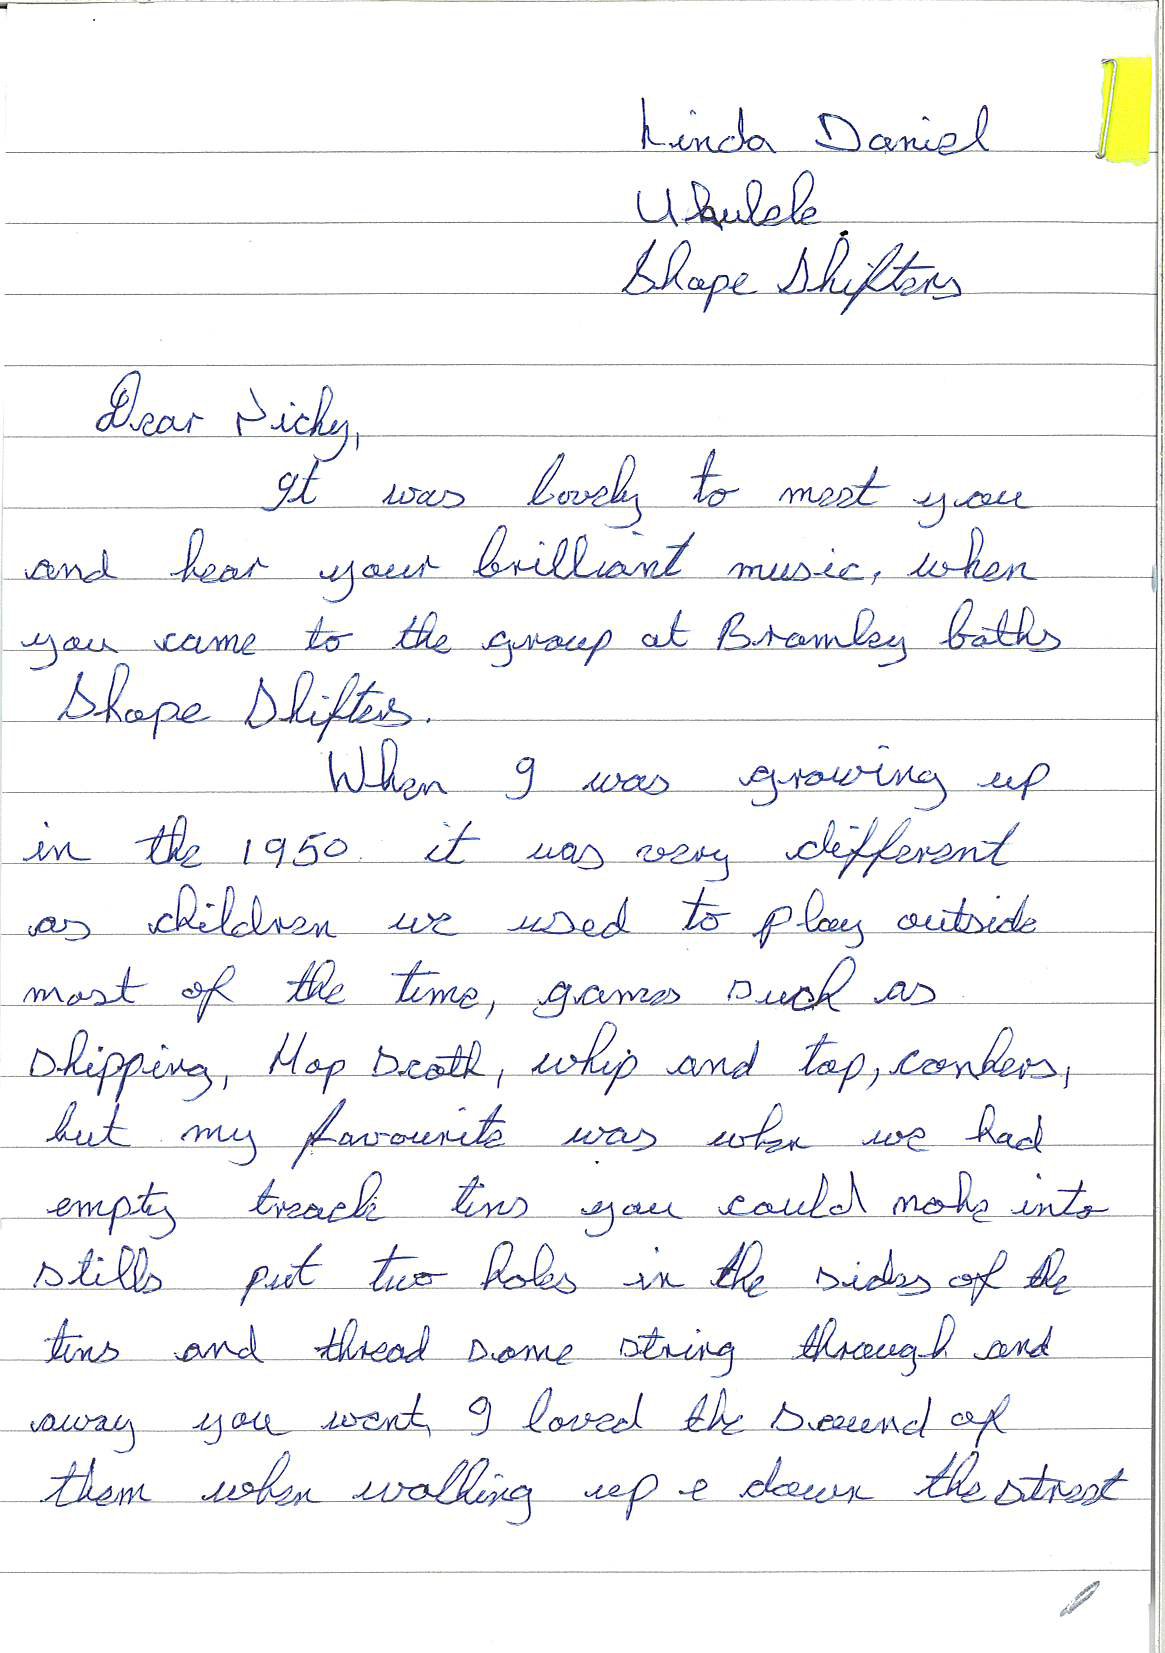 Linda Daniel
Ukulele
Shape Shifters
Dear Nicky,
It was lovely to meet you
and hear your brilliant music, when
you came to the group at Bramley baths
Shape Shifters.
When I was growing up
in the 1950. it was very different
as children we used to play outside
most of the time, games such as
skipping, Hop Scoth, whip and top, conkers,
but my favourite was when we had
empty treacle tins you could make into
stills put two holes in the sides of the
tins and thread some string through and
away you went, I loved the sound of
them when walking up & down the street